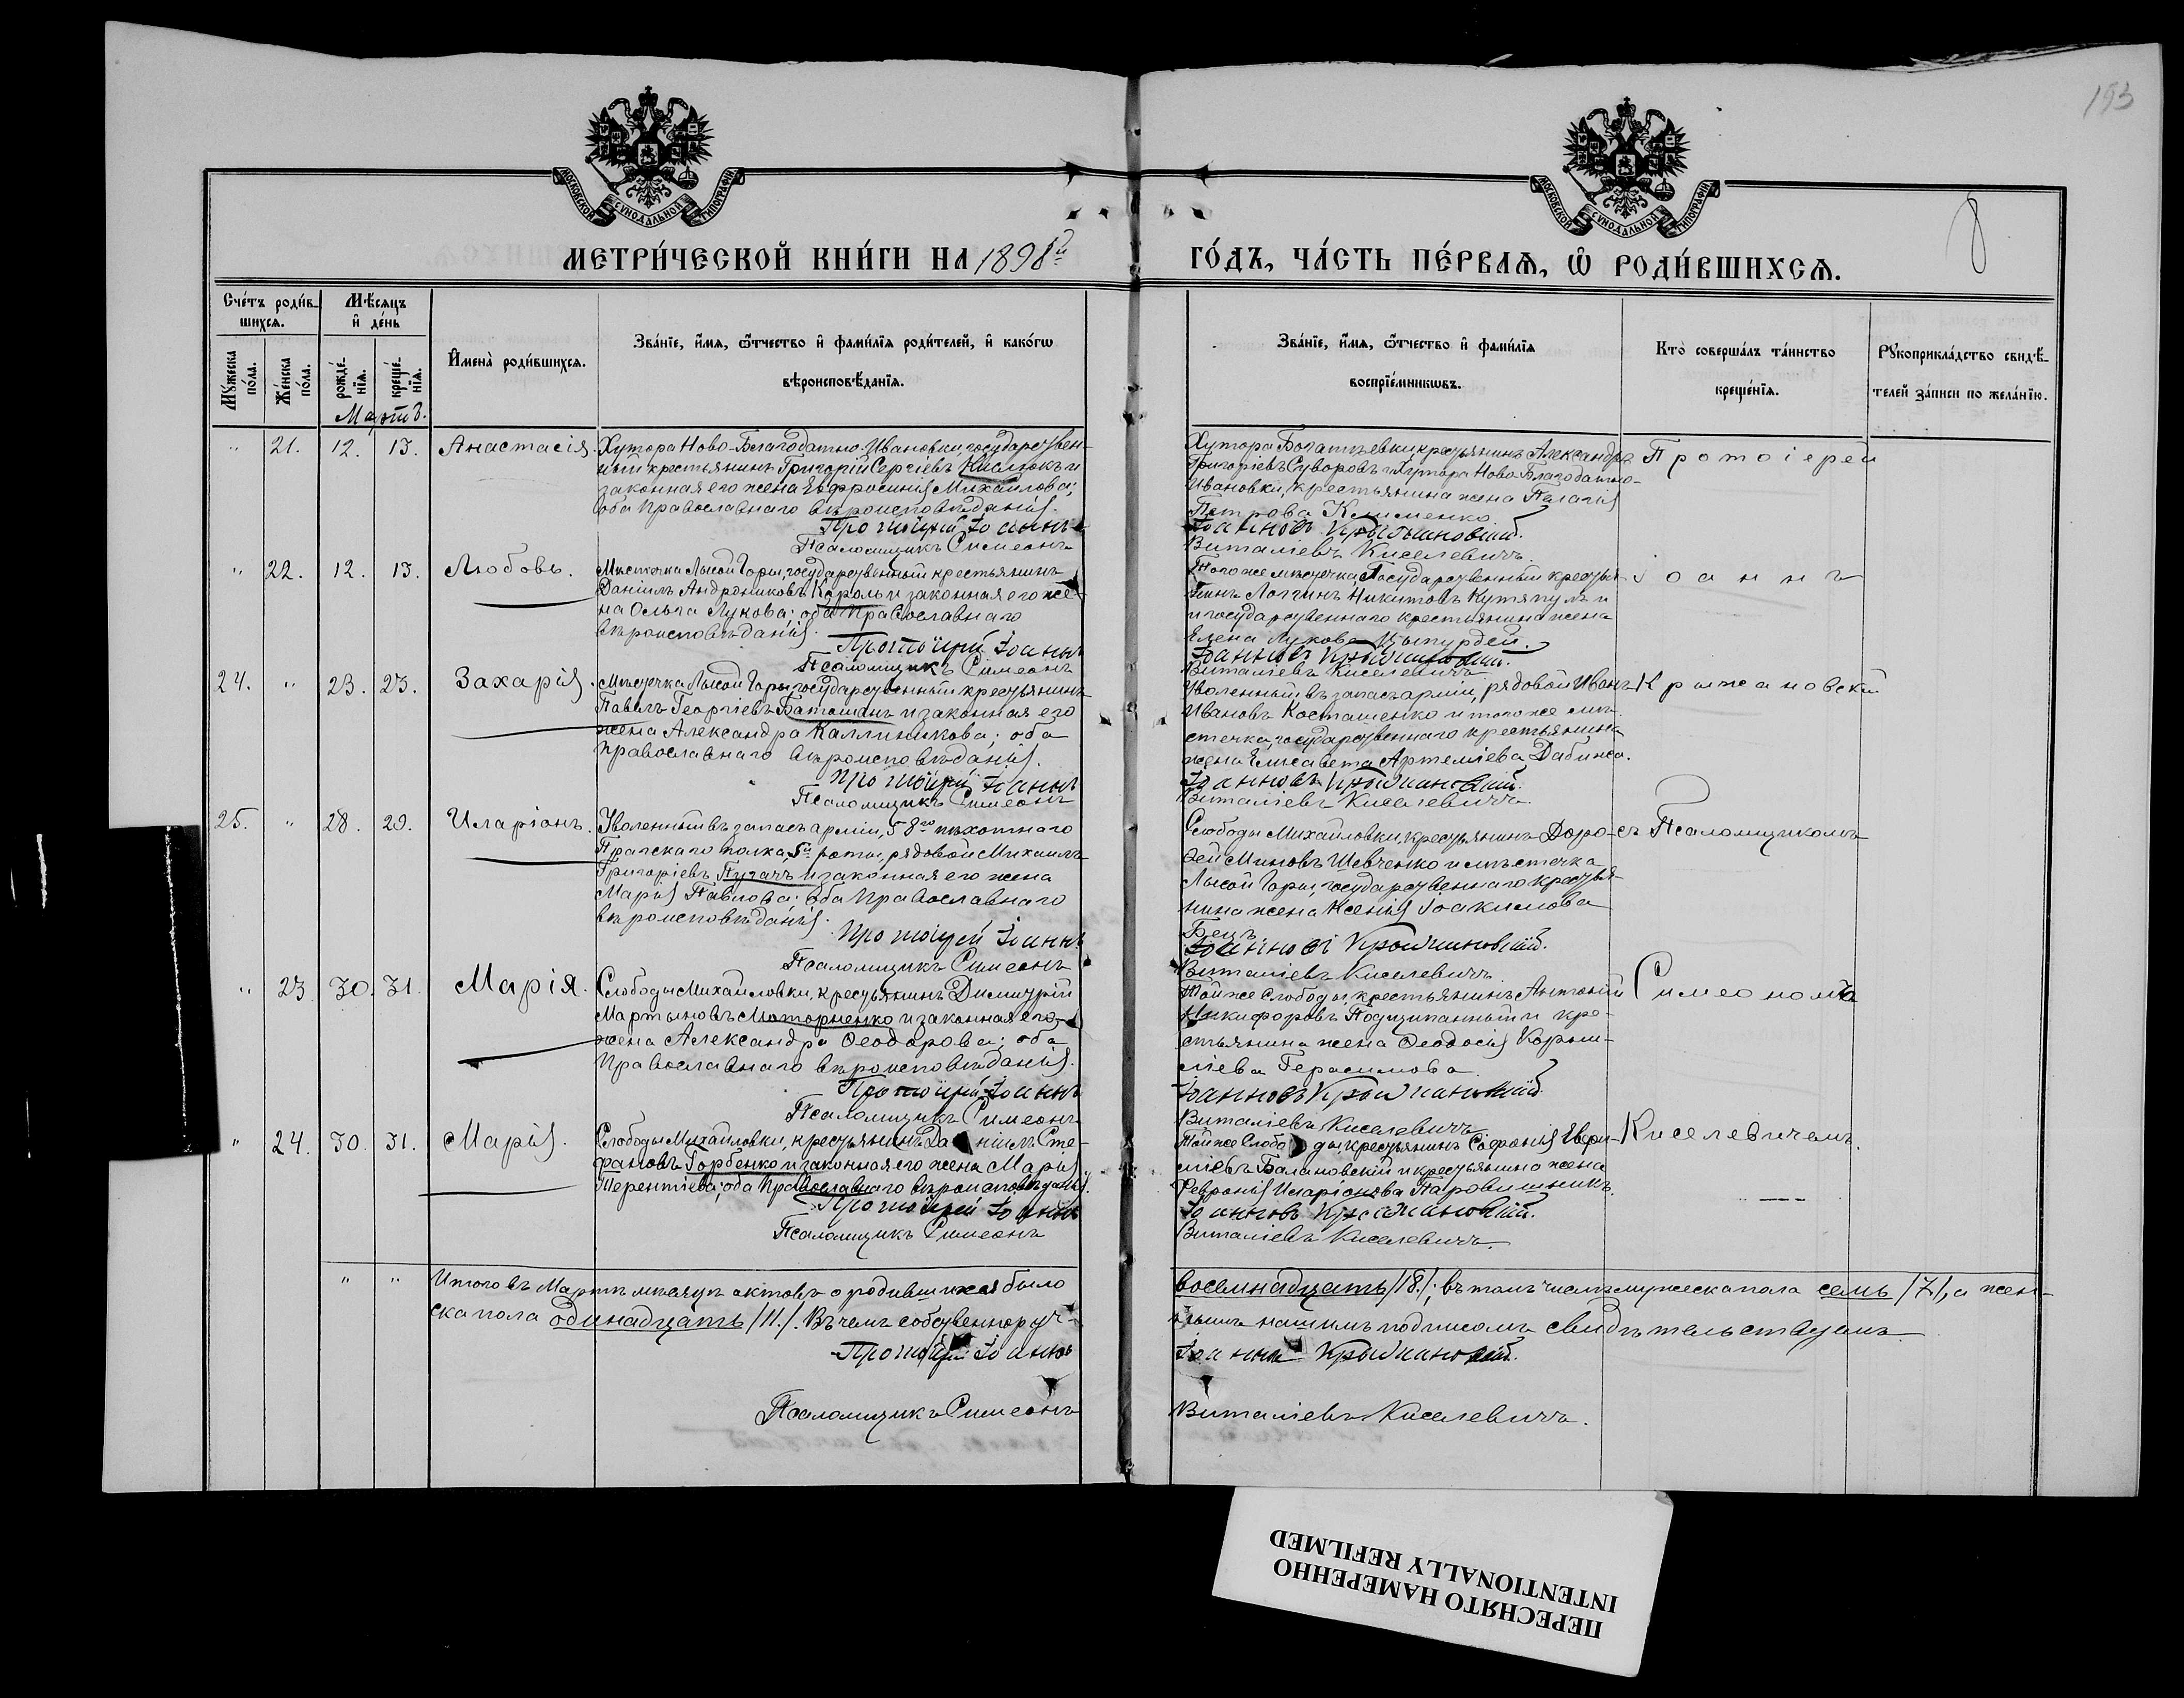 193
8
МОСКОВСКОЙ СѴНОДАЛЬНОЙ ТИПОГРАФІИ
МОСКОВСКОЙ СѴНОДАЛЬНОЙ ТИПОГРАФІИ
МЕТРИ́ЧЕСКОЙ КНИ́ГИ НА 1898й
ГО́ДЪ, ЧА́СТЬ ПЕ́РВАѦ, Ѡ РОДИ́ВШИХСѦ.
Сче́тъ роди́в-
шихсѧ.
Мѣ́сяцъ
и҆ де́нь
Мꙋ́жеска
по́ла.
Же́нска
по́ла.
рожде́-
нїѧ.
креще́-
нїѧ.
Мартъ.
И҆мена̀ роди́вшихсѧ.
Зва́нїе, и҆́мѧ, ѻ҆́тчество и҆ фами́лїѧ роди́телей, и҆ како́гѡ
вѣроисповѣ́данїѧ.
Зва́нїе, и҆́мѧ, ѻ҆́тчество и҆ фами́лїѧ
воспрїе́мникѡвъ.
Кто̀ соверша́лъ та́инство
креще́нїѧ.
Рꙋкоприкла́дство свидѣ́-
телей за́писи по жела́нїю.
" 21. 12. 13. Анастасія.
Хутора Ново-Благодатно-Ивановки, государствен-
ный крестьянинъ Григорій Сергіевъ Кислюкъ и
законная его жена Евфросинія Михайлова;
оба Православнаго вѣроисповѣданія.
Протоіерей Іоаннъ
Псаломщикъ Симеонъ
Хутора Богатыевки, крестьянинъ Александръ
Григоріевъ Суворовъ и Хутора Ново-Благодатно-
Ивановки, крестьянина жена Пелагія
Петрова Клименко
Іоанновъ Крыжановскій.
Виталіевъ Киселевичъ.
Протоіерей
" 22. 12. 13. Любовь.
Мѣстечка Лысой Горы, государственный крестьянинъ
Даніилъ Андрониковъ Король и законная его же-
на Ольга Лукова; оба Православнаго
вѣроисповѣданія.
Протоіерей Іоаннъ
Псаломщикъ Симеонъ
Того же мѣстечка Государственный кресть-
янинъ Логгинъ Никитовъ Кутяпулъ и
и государственнаго крестьянина жена
Елена Лукова Цыпурдей.
Іоанновъ Крыжановскій.
Виталіевъ Киселевичъ
Іоаннъ
24. " 23. 23. Захарія.
Мѣстечка Лысой Горы, государственный крестьянинъ
Павелъ Георгіевъ Баташанъ и законная его
жена Александра Каллиникова; оба
православнаго вѣроисповѣданія.
Протоіерей Іоаннъ
Псаломщикъ Симеонъ
Уволенный въ запасъ арміи, рядовой Иванъ
Ивановъ Косташенко и того же мѣ-
стечка, государственнаго крестьянина
жена Елисавета Артеміева Дабижа.
Іоанновъ Крыжановскій.
Виталіевъ Киселевичъ
Крыжановскій
25. " 28. 29. Иларіонъ.
Уволенный въ запасъ арміи, 58го пѣхотнаго
Прагскаго полка, 5й роты, рядовой Михаилъ
Григоріевъ Пугачъ и законная его жена
Марія Павлова; оба Православнаго
вѣроисповѣданія.
Протоіерей Іоаннъ
Псаломщикъ Симеонъ
Слободы Михайловки, крестьянинъ Доро-
фей Миновъ Шевченко и мѣстечка
Лысой Горы, государственнаго кресть-
янина жена Ксенія Іоакимова
Бецъ.
Іоанновъ Крыжановскій.
Виталіевъ Киселевичъ.
съ Псаломщикомъ
" 23 30. 31. Марія.
Слободы Михайловки, крестьянинъ Димитрій
Мартыновъ Моторненко и законная его
жена Александра Ѳеодорова; оба
Православнаго вѣроисповѣданія.
Протоіерей Іоаннъ
Псаломщикъ Симеонъ
Той же Слободы, крестьянинъ Антоній
Никифоровъ Подщипанный и кре-
стьянина жена Ѳеодосія Корни-
ліева Герасимова
Іоанновъ Крыжановскій.
Виталіевъ Киселевичъ.
Симеономъ
" 24. 30. 31. Марія.
Слободы Михайловки, крестьянинъ Даніилъ Сте-
фановъ Горбенко и законная его жена Марія
Терентіева; оба Православнаго вѣроисповѣданія.
Протоіерей Іоаннъ
Псаломщикъ Симеонъ
Той же Слободы, крестьянинъ Софонія
Балановскій и крестьянина жена
Февронія Иларіонова Паровишникъ.
Іоанновъ Крыжановскій.
Виталіевъ Киселевичъ.
Киселевичемъ.
" " Итого въ Мартѣ мѣсяцѣ актовъ о родившихся было восемнадцать /18./; въ томъ числѣ мужеска пола семь /7/, а жен-
ска пола одинадцать /11./. Въ чемъ собственноруч- нымъ нашимъ подписомъ свидѣтельствуемъ.
Протоіерей Іоаннъ Іоанновъ Крыжановскій.
Псаломщикъ Симеонъ Виталіевъ Киселевичъ.
ПЕРЕСНЯТО НАМЕРЕННО
INTENTIONALLY REFILMED